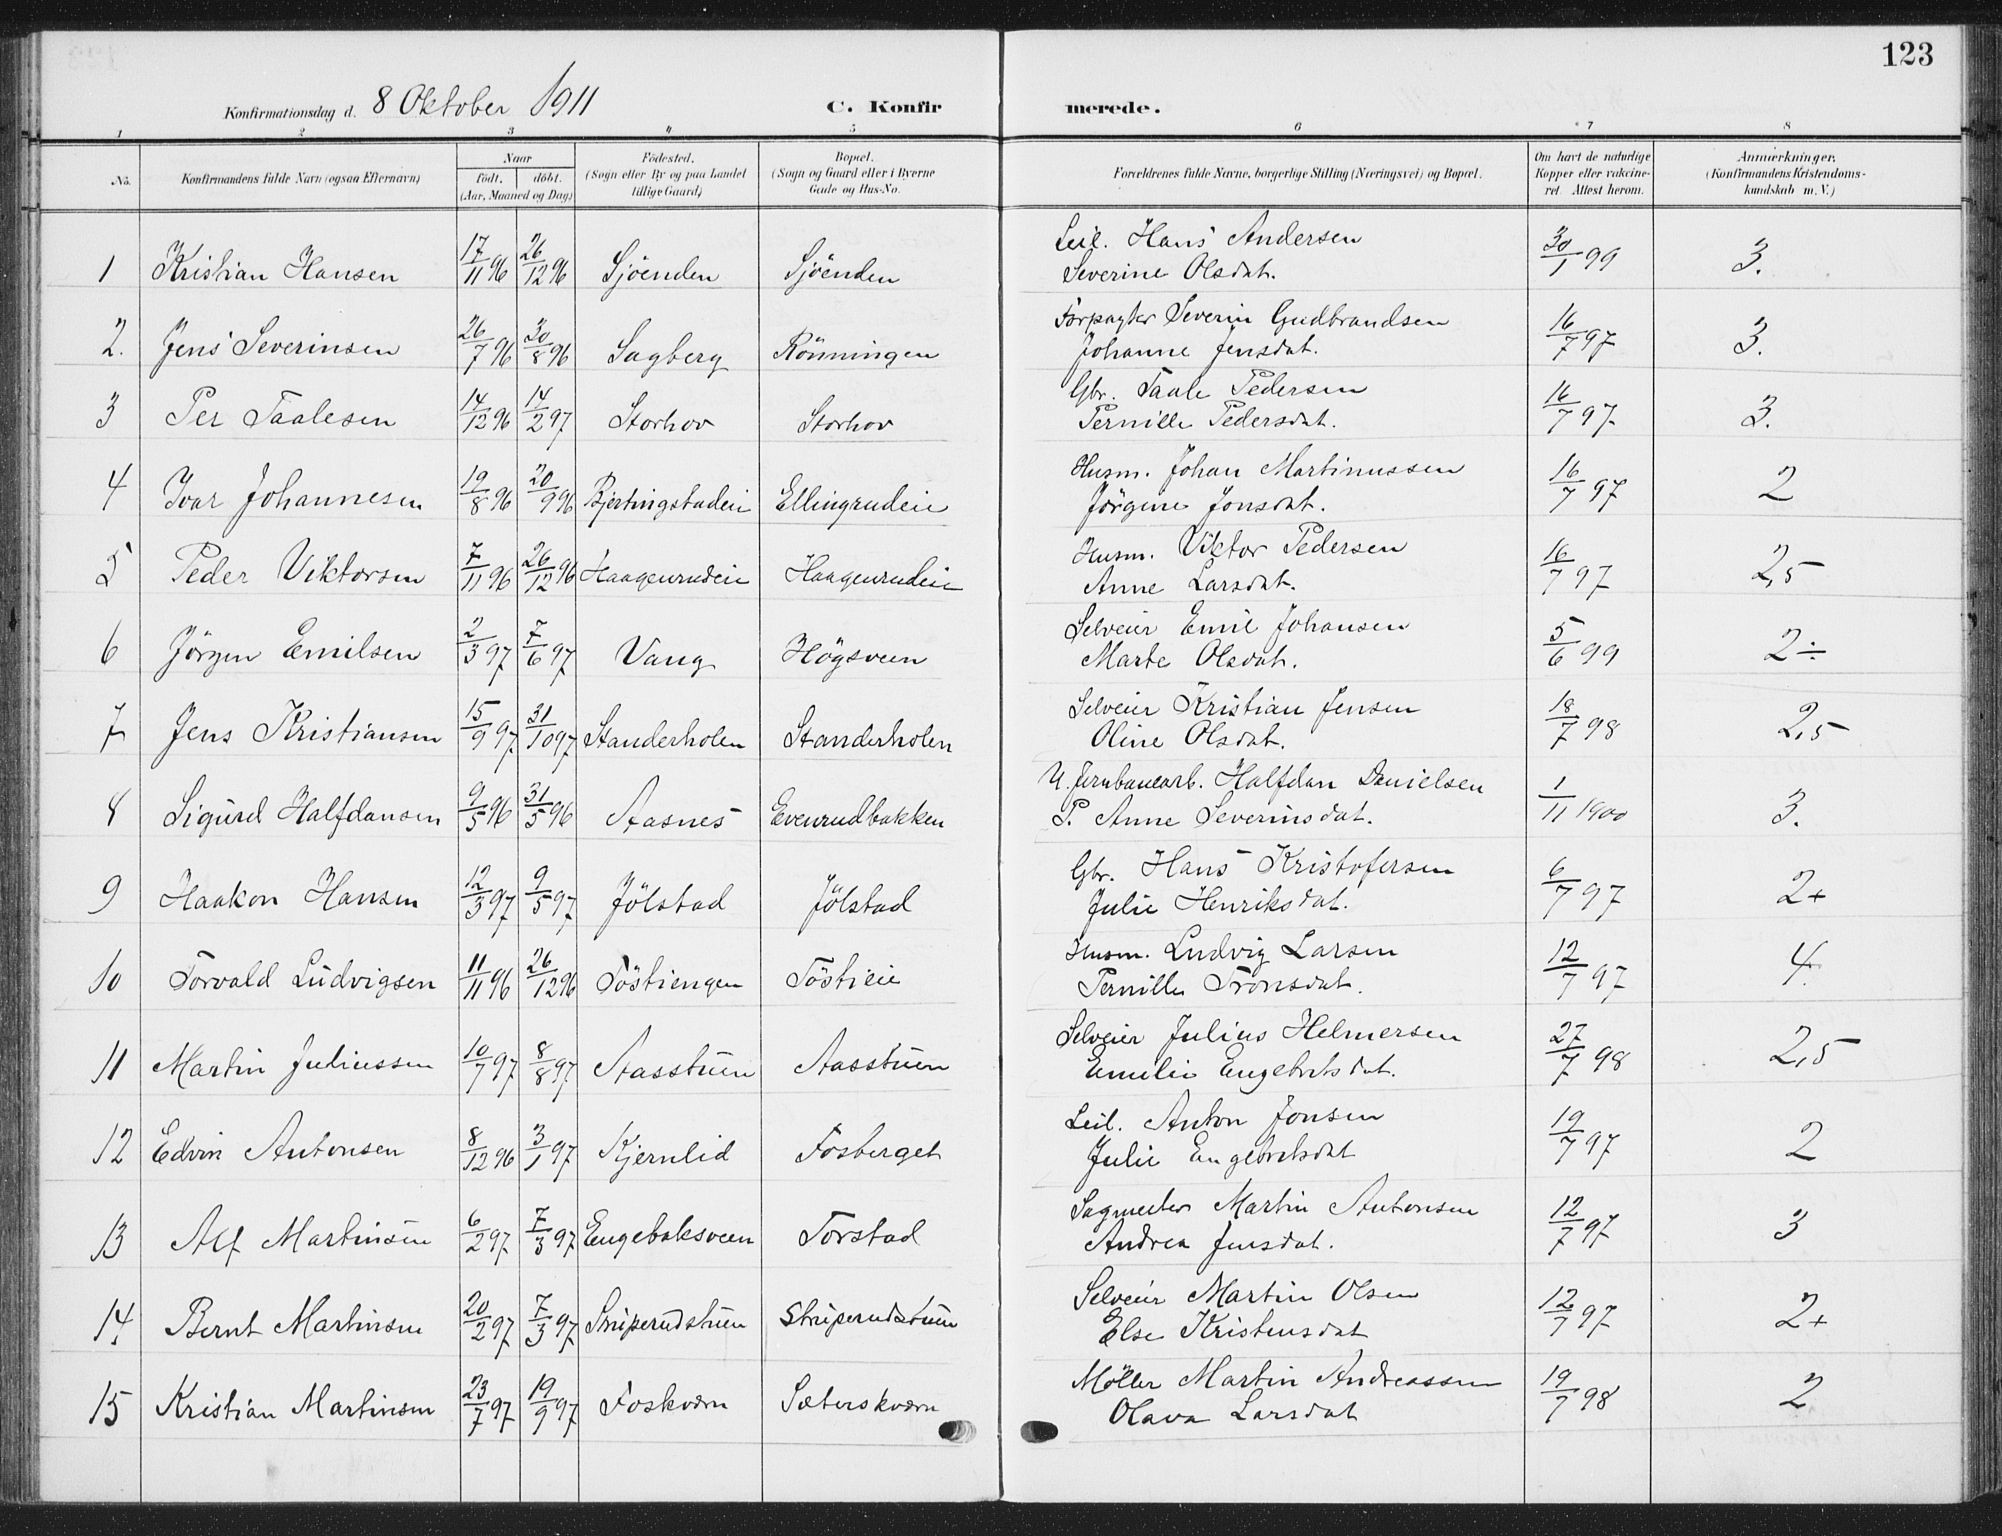 123
Konfirmationsdag d. 8 Oktober 1911 C. Konfirmerede.
1 2 3 4 5 6 7 8
No. Konfirmandens fulde Navn (ogsaa Efternavn) Naar født, døbt. (Aar, Maaned og Dag) Fødested. (Sogn eller By og paa Landet tillige Gaard) Bopæl. (Sogn og Gaard eller i Byerne Gade og Hus-No. Forældrenes fulde Navne, borgerlige Stilling (Næringsvei) og Bopæl. Om havt de naturlige Kopper eller vakcineret. Attest herom. Anmærkninger. (Konfirmandens Kristendomskundskab m. V.)
1 Kristian Hansen 17/11 96 26/12 96 Sjöenden Sjöenden Leil. Hans Andersen 30/1 99 3.
Severine Olsdat.
2. Jens Severinsen 26/7 96 30/8 96 Sagberg Rönningen Forpagter Severin Gudbrandsen 16/7 97 3.
Johanne Jensdat.
3 Per Taalesen 14/12 96 14/2 97 Storhov Storhov Gbr. Taale Pedersen 16/7 97 3.
Pernille Pedersdat.
4 Ivar Johannesen 19/8 96 20/9 96 Bjertingstadeie Ellingrudeie Husm. Johan Martinussen 16/7 97 2
Jörgine Jonsdat.
5 Peder Viktorsen 7/11 96 26/12 96 Haagenrudeie Haagenrudeie Husm. Viktor Pedersen 16/7 97 2,5
Anne Larsdat.
6 Jörgen Emilsen 2/3 97 7/6 97 Vang Högsveen Selveier Emil Johansen 5/6 99 2÷
Marte Olsdat.
7 Jens Kristiansen 15/9 97 31/10 97 Standerholen Standerholen Selveier Kristian Jensen 18/7 98 2,5
Oline Olsdat.
8 Sigurd Halfdansen 9/5 96 31/5 96 Aasnes Evenrudbakken U. Jernbanearb. Halfdan Danielsen 1/11 1900 3.
P. Anne Severinsdat.
9 Haakon Hansen 12/3 97 9/5 97 Jölstad Jölstad Gbr. Hans Kristofersen 6/7 97 2+
Julie Henriksdat.
10 Torvald Ludvigsen 11/11 96 26/12 96 Töstiengen Töstieie Husm. Ludvig Larsen 12/7 97 4.
Pernille Tronsdat.
11 Martin Juliussen 10/7 97 8/8 97 Aasstuen Aasstuen Selveier Julius Helmersen 27/7 98 2,5
Emilie Engebretsdat.
12 Edvin Antonsen 8/12 96 3/1 97 Kjernlid Fosberget Leil. Anton Jonsen 19/7 97 2
Julie Engebretsdat
13 Alf Martinsen 6/2 97 7/3 97 Engebaksveen Torstad Sagmester Martin Antonsen 12/7 97 3
Andrea Jensdat.
14. Bernt Martinsen 20/2 97 7/3 97 Struperudstuen Struperudstuen Selveier Martin Olsen 12/7 97 2+
Else Kristensdat
15 Kristian Martinsen 23/7 97 19/9 97 Foskværn Sæterskværn Möller Martin Andreassen 19/7 98 2
Olava Larsdat